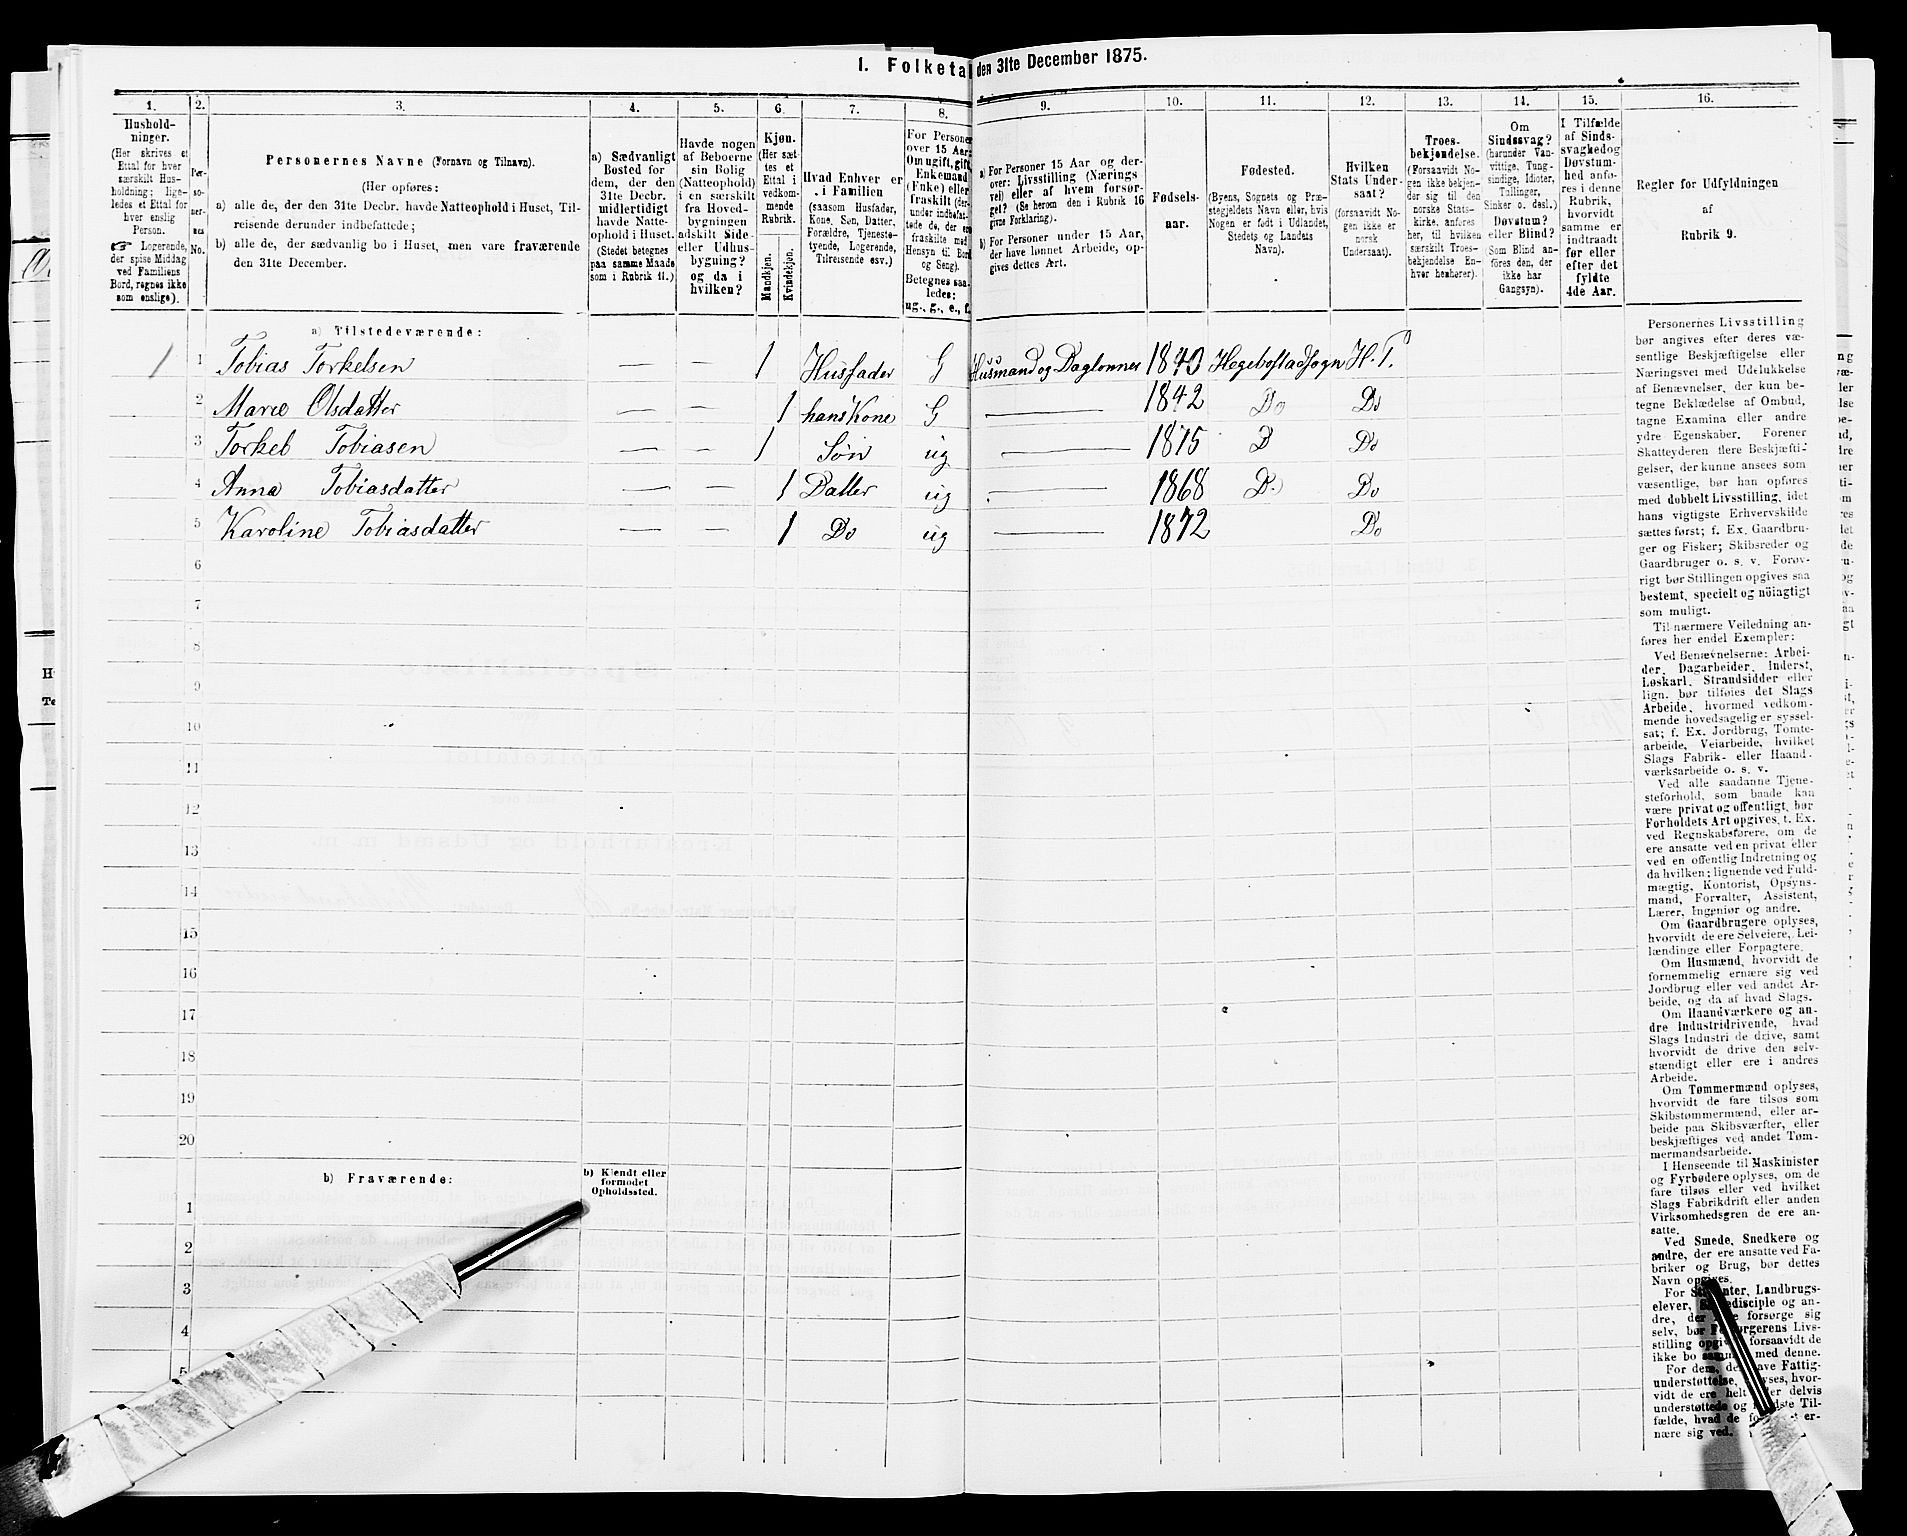 I. Folketal den 31te December 1875.
1. 2. 3. 4. 5. 6. 7. 8. 9. 10. 11. 12. 13. 14. 15. 16.
Hushold-
ninger.
(Her skrives et
Ettal for hver
særskilt Hus-
holdning; lige-
ledes et Ettal for
hver enslig
Person.
☞ Logerende,
der spise Middag
ved Familiens
Bord, regnes ikke
som enslige).
Per-
so-
ner-
nes
No.
Personernes Navne (Fornavn og Tilnavn).
(Her opføres:
a) alle de, der den 31te Decbr. havde Natteophold i Huset, Til-
reisende derunder indbefattede;
b) alle de, der sædvanlig bo i Huset, men vare fraværende
den 31te December.
a) Sædvanligt
Bosted for
dem, der den
31te Decbr.
midlertidigt
havde Natte-
ophold i Huset.
(Stedet betegnes
paa samme Maade
som i Rubrik 11.)
Havde nogen
af Beboerne
sin Bolig
(Natteophold)
i en særskilt
fra Hoved-
bygningen
adskilt Side-
eller Udhus-
bygning?
og da i
hvilken?
Kjøn.
(Her sæt-
tes et
Ettal i
vedkom-
mende
Rubrik.
Mandkjøn.
Kvindekjøn.
Hvad Enhver er
i Familien
(saasom Husfader,
Kone, Søn, Datter,
Forældre, Tjeneste-
tyende, Logerende,
Tilreisende osv.)
For Personer
over 15 Aar:
Om ugift, gift,
Enkemand
(Enke) eller
fraskilt (der-
under indbefat-
tede de, der ere
fraskilte med
Hensyn til Bord
og Seng).
Betegnes saa-
ledes:
ug., g., e., f.
a) For Personer 15 Aar og der-
over: Livsstilling (Nærings-
vei) eller af hvem forsør-
get? (Se herom den i Rubrik 16
givne Forklaring).
b) For Personer under 15 Aar,
der have lønnet Arbeide, op-
gives dettes Art.
Fødsels-
aar.
Fødested.
(Byens, Sognets og Præ-
stegjeldets Navn eller, hvis
Nogen er født i Udlandet,
Stedets og Landets
Navn).
Hvilken
Stats Under-
saat?
(forsaavidt No-
gen ikke er
norsk
Undersaat).
Troes-
bekjendelse.
(Forsaavidt No-
gen ikke bekjen-
der sig til den
norske Stats-
kirke, anføres
her, til hvilken
særskilt Troes-
bekjendelse En-
hver henhører).
Om
Sindssvag?
(herunder Van-
vittige, Tung-
sindige, Idioter,
Tullinger,
Sinker o. desl.)
Døvstum?
eller Blind?
(Som Blind an-
føres den, der
ikke har
Gangsyn).
I Tilfælde
af Sinds-
svaghed og
Døvstum-
hed anfø-
res i denne
Rubrik,
hvorvidt
samme er
indtraadt
før eller
efter det
fyldte
4de Aar.
Regler for Udfyldningen
af
Rubrik 9.
a) Tilstedeværende:
1 1 Tobias Torkelsen — — 1 Husfader G Husmand og Daglønner 1843 Hegebostad sogn H. P.
2 Marie Olsdatter — — 1 hans Kone G — 1842 Do Do
3 Torkel Tobiasen — — 1 Søn ug — 1875 D Do
4 Anna Tobiasdatter — — 1 Datter ug — 1868 Do Do
5 Karoline Tobiasdatter — — 1 Do ug — 1872 Do
6
7
8
9
10
11
12
13
14
15
16
17
18
19
20
b) Fraværende:
b) Kjendt eller
formodet
Opholdssted.
1
2
3
4
5
Personernes Livsstilling
bør angives efter deres væ-
sentlige Beskjæftigelse eller
Næringsvei med Udelukkelse
af Benævnelser, der kun be-
tegne Beklædelse af Ombud,
tagne Examina eller andre
ydre Egenskaber. Forener
Skatteyderen flere Beskjæfti-
gelser, der kunne ansees som
væsentlige, bør han opføres
med dobbelt Livsstilling, idet
hans vigtigste Erhvervskilde
sættes først; f. Ex. Gaardbru-
ger og Fisker; Skibsreder og
Gaardbruger o. s. v. Forøv-
rigt bør Stillingen opgives saa
bestemt, specielt og nöiagtigt
som muligt.
Til nærmere Veiledning an-
føres her endel Exempler:
Ved Benævnelserne: Arbei-
der, Dagarbeider, Inderst,
Løskarl, Strandsidder eller
lign. bør tilføies det Slags
Arbeide, hvormed vedkom-
mende hovedsagelig er syssel-
sat; f. Ex. Jordbrug, Tomte-
arbeide, Veiarbeide, hvilket
Slags Fabrik- eller Haand-
værksarbeide o. s. v.
Ved alle saadanne Tjene-
steforhold, som baade kan
være privat og offentligt, bør
Forholdets Art opgives, f. Ex.
ved Regnskabsførere, om de
ere ansatte ved en privat eller
ved en offentlig Indretning og
da hvilken; lignende ved Fuld-
mægtig, Kontorist, Opsyns-
mand, Forvalter, Assistent,
Lærer, Ingeniør og andre.
Om Gaardbrugere oplyses,
hvorvidt de ere Selveiere, Lei-
lændinge eller Forpagtere.
Om Husmænd, hvorvidt de
fornemmelig ernære sig ved
Jordbrug eller ved andet Ar-
beide, og da af hvad Slags.
Om Haandværkere og an-
dre Industridrivende, hvad
Slags Industri de drive, samt
hvorvidt de drive den selv-
stændigt eller ere i andres
Arbeide.
Om Tømmermænd oplyses,
hvorvidt de fare tilsøs som
Skibstømmermænd, eller ar-
beide paa Skibsværfter, eller
beskjæftiges ved andet Tøm-
mermandsarbeide.
I Henseende til Maskinister
og Fyrbødere oplyses, om de
fare tilsøs eller ved hvilket
Slags Fabrikdrift eller anden
Virksomhedsgren de ere an-
satte.
Ved Smede, Snedkere og
andre, der ere ansatte ved Fa-
briker og Brug, bør dettes
Navn opgives.
For Landbrugs-
elever, og an-
dre, der forsørge sig
selv, bør Livs-
stilling forsaavidt de
ikke bo med denne.
For dem, Fattig-
understøttelse, hvor-
vidt de ere helt eller delvis
understøttede og Til-
fælde, hvad de er-
nære sig ved.